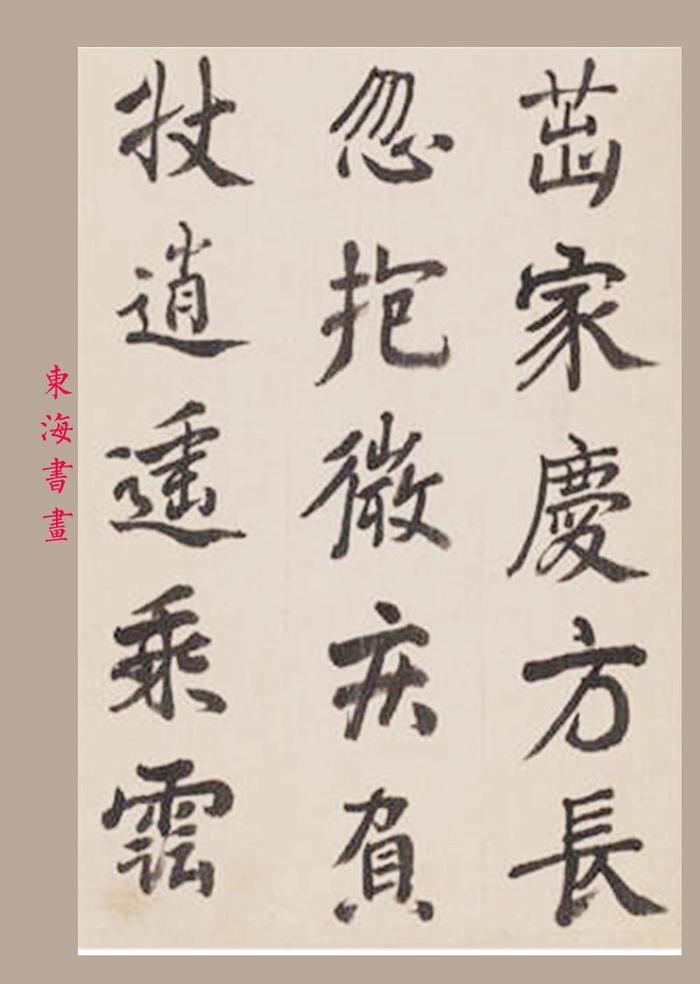 茁家慶方長
忽抱微疾負
杖逍遥乘雲
東海書畫